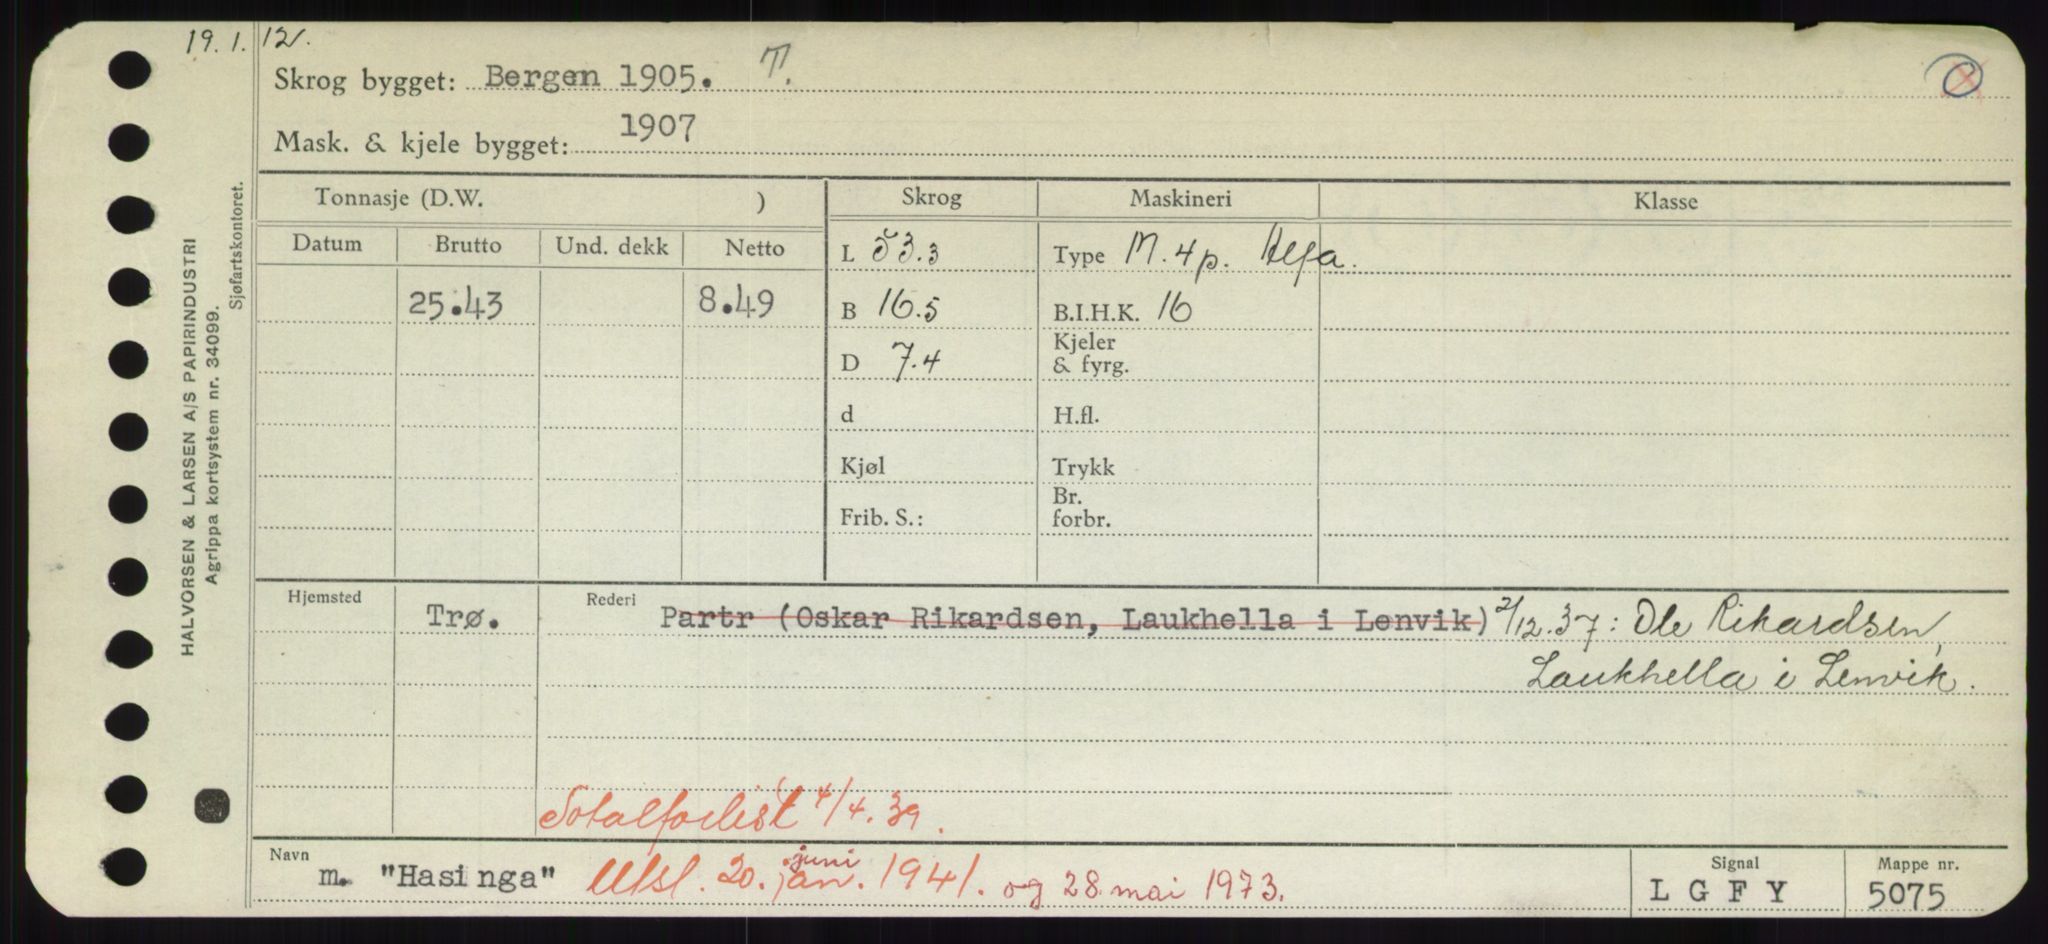 19. 1. 12.
Skrog bygget: Bergen 1905. T.
Mask. & kjele bygget: 1907
HALVORSEN & LARSEN A/S PAPIRINDUSTRI
Agrippa kortsystem nr. 34099.
Sjøfartskontoret.
Tonnasje (D.W. ) Skrog Maskineri Klasse
Datum Brutto Und. dekk Netto
L 53.3 Type M. 4p. Alfa.
25.43 8.49 B 16.5 B.I.H.K. 16
D 7.4 Kjeler & fyrg.
d H.fl.
Kjøl Trykk
Frib. S.: Br. forbr.
Hjemsted Trø. Rederi Partr (Oskar Rikardsen, Laukhella i Lenvik) 2/12.37: Ole Rikardsen,
Laukhella i Lenvik.
Totalforlist 4/4.39.
Navn m. "Hasinga" Utsl. 20. jan. juni 1941. og 28 mai 1973.
Signal LGFY
Mappe nr. 5075